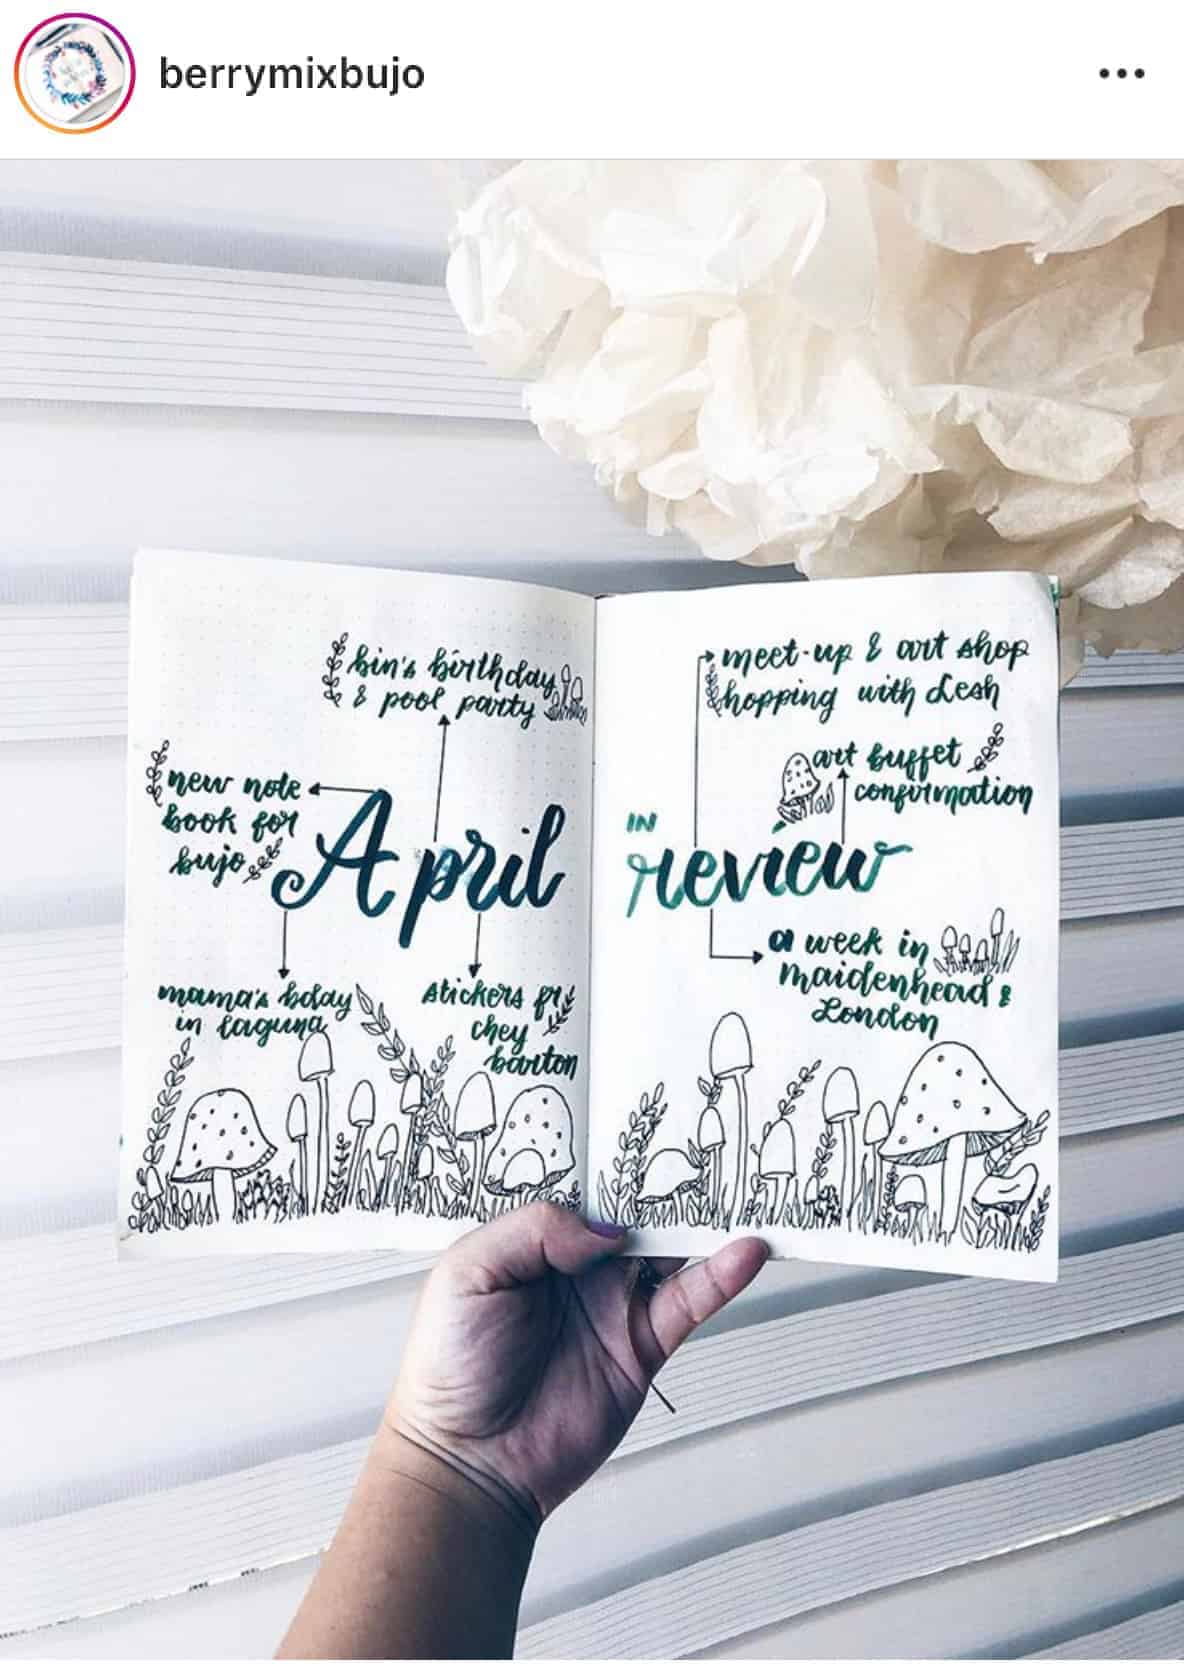 berrymixbujo
bin's birthday
& pool party
new note
book for
bujo
April
mama's bday
in laguna
stickers fr
chey
barton
meet-up & art shop
hopping with Lesh
art buffet
confirmation
IN
review
a week in
maidenhead &
London